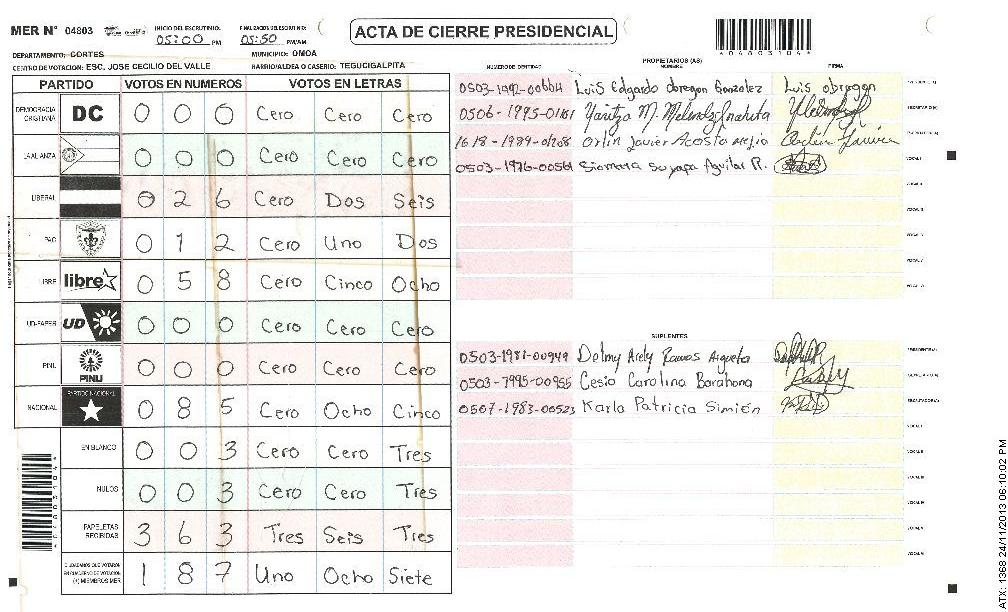 MER N° 04803
INICIO DEL ESCRUTINIO: 05:00 PM
FINALIZACION DEL ESCRUTINIO: 05:50 PM/AM
ACTA DE CIERRE PRESIDENCIAL
4048031044
DEPARTAMENTO: CORTES MUNICIPIO: OMOA
CENTRO DE VOTACION: ESC. JOSE CECILIO DEL VALLE BARRIO/ALDEA O CASERIO: TEGUCIGALPITA
PARTIDO VOTOS EN NUMEROS VOTOS EN LETRAS
DEMOCRACIA CRISTIANA DC 0 0 0 Cero Cero Cero
LA ALIANZA 0 0 0 Cero Cero Cero
LIBERAL 0 2 6 Cero Dos Seis
PAC 0 1 2 Cero Uno Dos
LIBRE libre 0 5 8 Cero Cinco Ocho
UD-FAPER UD 0 0 0 Cero Cero Cero
PINU PINU 0 0 0 Cero Cero Cero
NACIONAL PARTIDO NACIONAL 0 8 5 Cero Ocho Cinco
EN BLANCO 0 0 3 Cero Cero Tres
NULOS 0 0 3 Cero Cero Tres
PAPELETAS RECIBIDAS 3 6 3 Tres Seis Tres
CIUDADANOS QUE VOTARON EN CUADERNO DE VOTACION (+) MIEMBROS MER 1 8 7 Uno Ocho Siete
PROPIETARIOS (AS)
NUMERO DE IDENTIDAD NOMBRE FIRMA
0503-1992-00664 Luis Edgardo Obregon Gonzalez Luis obregon
0506-1995-01181 Yaritza M.
1618-1989-01208 Orlin Javier Acosta
0503-1976-00561 Siomara Suyapa Aguilar R.
SUPLENTES
0503-1981-00949 Delmy Arely Ramos Argueta
0503-1995-00955 Cesia Carolina Barahona
0507-1983-00523 Karla Patricia Simión
ATX: 1368 24/11/2013 06:10:02 PM